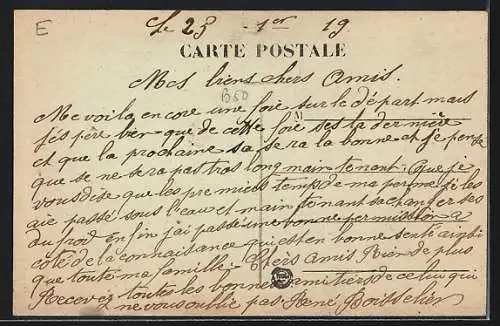 E
Le 23 - 1er 19
CARTE POSTALE
Mes biens chers Amis.
B50
Me voila encore une foie sur le départ mais
M
j'éspère bien que de cette foie ses la dernière
et que la prochaine sa sera la bonne et je pense
que se ne sera pas tros long maintenant. Que je
vous dise que les premiers temps de ma perme je les
aie passé sous l'eau et maintenant sa changer ses
du froid enfin j'ai passé une bonne permission a
coté de la connaissance qui est en bonne senté ainsi
que toute ma famille. Chers Amis Rien de plus
Recevez toutes les bonnes amitiers de celui qui
ne vous oublie pas René Boisselier